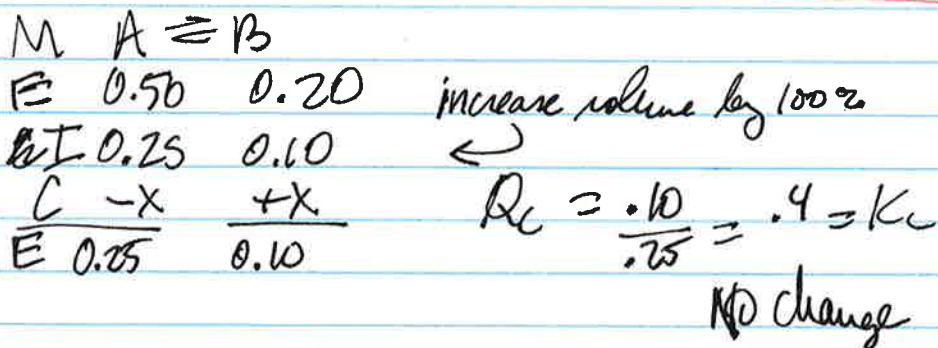 M A ⇌ B
E 0.50 0.20 increase volume by 100%
I 0.25 0.10
C -X +X Qc = .10/.25 = .4 = Kc
E 0.25 0.10
No change